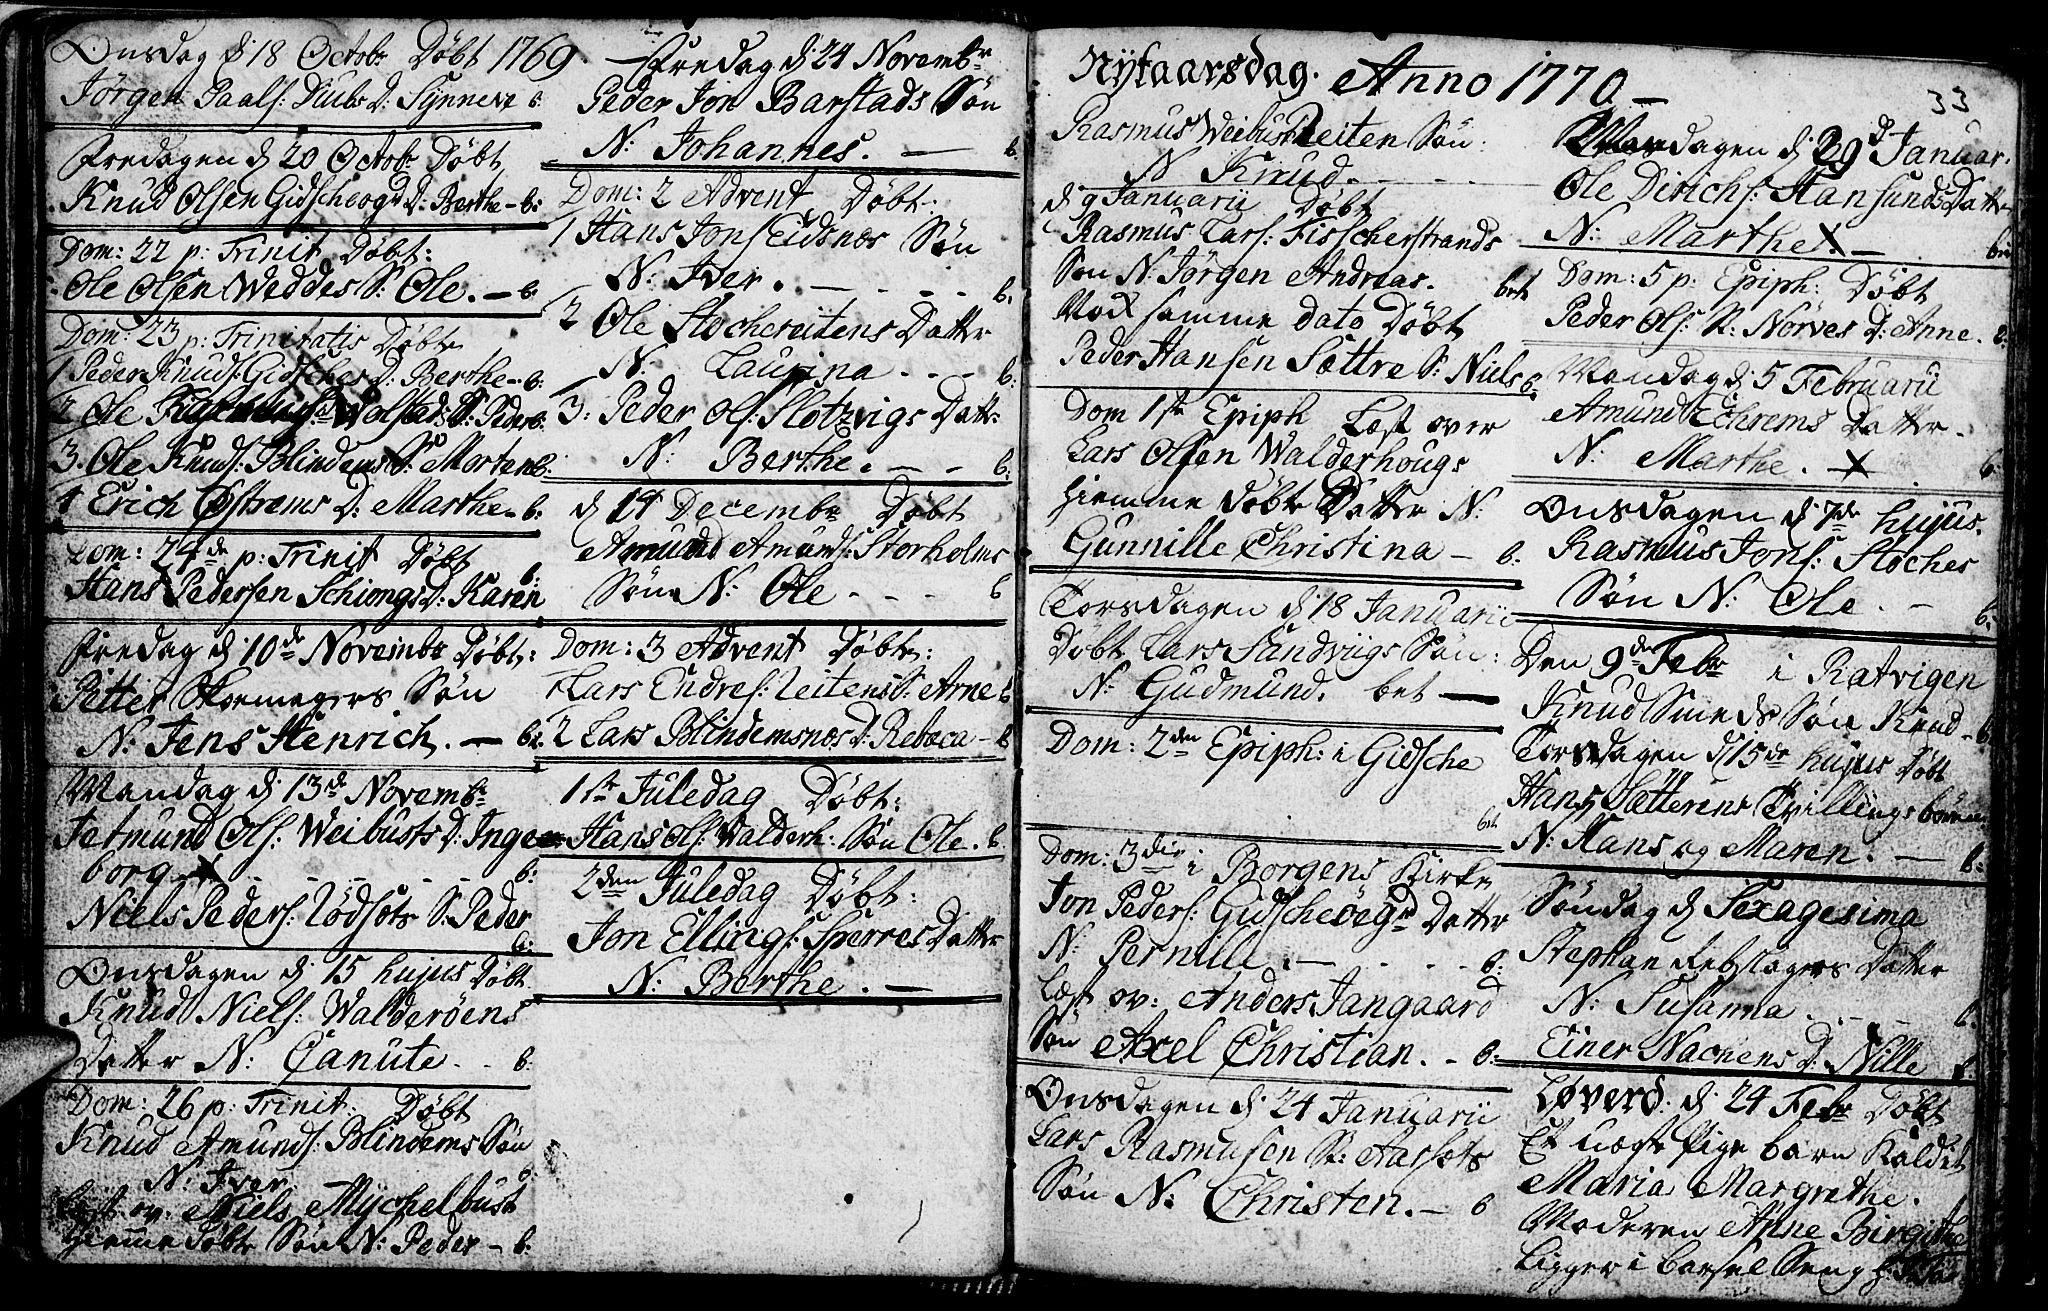 Onsdag d: 18 Octobr Døbt 1769.
Jørgen Paals: Diubs D: Synneve b:
Fredagen d 20 Octobr Døbt
Knud Olsen Gidscheøgd D: Berthe - b:
Dom: 22 p: Trinit Døbt:
Ole Olsen Weddes S: Ole. - b:
Dom: 23 p: Trinitatis Døbt
1 Peder Knuds: Gidsches D: Berthe - b:
2 Ole Wolstads S: Peder b:
3. Ole Knuds: Blindems S: Morten b:
4 Erich Østrems D: Marthe - b:
Dom: 24de p: Trinit Døbt
Hans Pedersen Schiongs D: Karen b:
Fredag d: 10de Novembr Døbt:
Petter Skomagers Søn
N: Jens Henrich. - b:
Mandag d: 13de Novembr
Jetmund Ols: Weibusts D: Inge
borg - - - - b:
Niels Peders: Lødsøts S: Peder b:
Onsdagen d: 15 hujus Døbt
Knud Niels: Walderøens
Datter N: Canute - - b:
Dom: 26 p: Trinit: Døbt
Knud Amunds: Blindems Søn
N: Iver. b:
Læst ov: Niels Mychelbust
hiemme døbte Søn N: Peder - b:
Fredag d: 24 Novembr
Peder Jon Barstads Søn
N: Johannes. - b.
Dom: 2 Advent Døbt.
1 Hans Jons Eidsnæs Søn
N: Iver. - - - - b:
2 Ole Stochereitens Datter
N: Laurina - - - b:
3: Peder Ols: Slotzvigs Datter
N: Berthe. - - - b:
d 14 Decembr Døbt
Amund Amunds: Storholms
Søn N: Ole - - - b
Dom: 3 Advent Døbt:
Lars Endres: Leitens S: Arne b
2 Lars Blindemsnæs D: Rebeca - b
1ste Juledag Døbt:
Hans Ols: Walderh: Søn Ole. b
2den Juledag Døbt:
Jon Ellings: Sperres Datter
N: Berthe. -
Nytaarsdag. Anno 1770 -
33
Rasmus Weibust Leiten Søn:
N Knud. - - -
d 9 Januarii Døbt
Rasmus Lars: Fisscherstrands
Søn N: Jørgen Andreas. bet
Nok samme dato Døbt
Peder Hansen Sættre S: Niels b.
Dom 1ste Epiph Læst over
Lars Olsen Walderhougs
hiemme døbte Datter N:
Gunnille Christina - b:
Torsdagen d: 18 Januarii
Døbt Lars Sandviigs Søn:
N: Gudmund. bet -
Dom: 2den Epiph: i Gidsche
bet
Dom: 3die i Borgens Kirke
Jon Peders: Gidscheøegd Datter
N: Pernille. - - - - b:
Læst ov: Anders Jangaard
Søn Axel Christian. - b:
Onsdagen d: 24 Januarii
Lars Rasmusen St: Aarsets
Søn N: Christen. - b
Mandagen d: 29d Januar.
Ole Dirichs: Hansunds Datter
N: Marthe. - b:
Dom: 5 p: Epiph: Døbt
Peder Ols: St: Nørves D: Anne. b:
Mandag d: 5 Februarii
Amund Echrems Datter
N: Marthe. - b:
Onsdagen d: 7de hujus.
Rasmus Jons: Stoches
Søn N: Ole. - b:
Den 9de Febr i Ratvigen
Knud Smeds Søn Knud - b.
Torsdagen d 15de hujus Døbt
Hans Sætterens Tvillingsbørn
N: Hans og Maren. - b:
Søndag d Sexagesima
Stephan Rebslagers Datter
N: Susanna. - - - b.
Einer Nachens D: Nille b
Løverd: d: 24 Febr Døbt
Et uægte Pige barn Kaldet
Maria Margrethe.
Moderen Anne Birgithe
Ligger i Barsel Seng